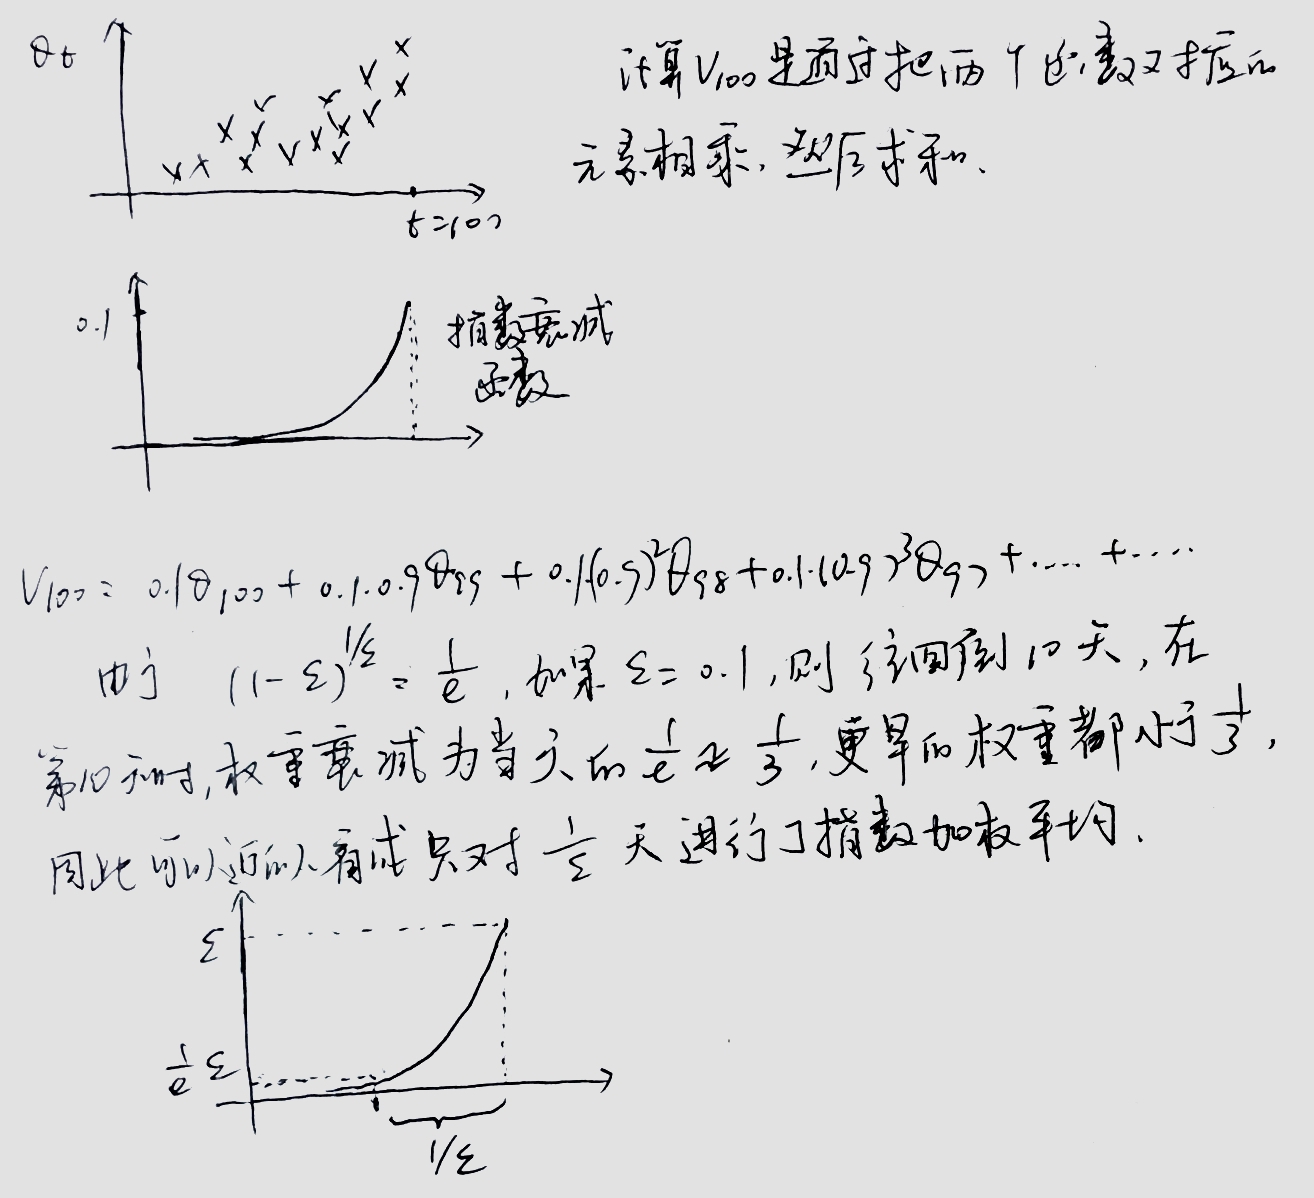 θt
计算V100是通过把两个函数对应的
元素相乘,然后求和.
t=100
0.1
指数衰减
函数
V100= 0.1θ100 + 0.1·0.9θ99 + 0.1(0.9)²θ98 + 0.1·(0.9)³θ97 + .... + ....
由于 (1-ε)^1/ε = 1/e , 如果 ε=0.1, 则往回到10天, 在
第10天时, 权重衰减为当天的 1/e ≈ 1/3, 更早的权重都小于 1/3,
因此可以近似看成只对 1/ε 天进行了指数加权平均.
ε
1/e ε
1/ε